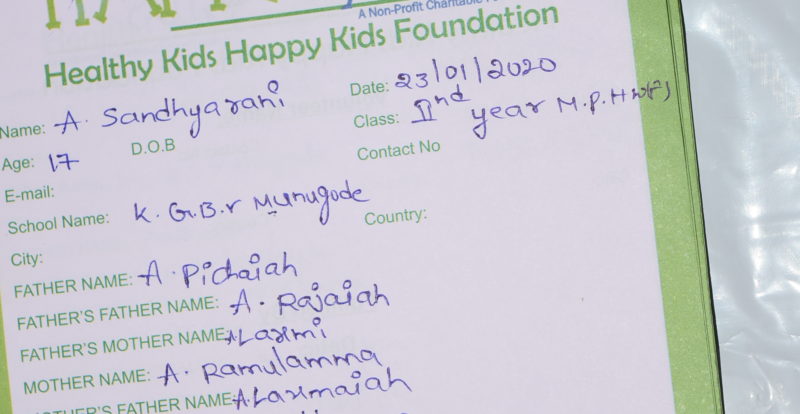 A Non-Profit Charitable
Healthy Kids Happy Kids Foundation
Name: A. Sandhyarani Date: 23/01/2020
Age: 17 D.O.B Class: IInd year M.P.HW(F)
E-mail: Contact No
School Name: K.G.B.V Munugode Country:
City:
FATHER NAME: A. Pichaiah
FATHER'S FATHER NAME: A. Rajaiah
FATHER'S MOTHER NAME: A Laxmi
MOTHER NAME: A. Ramulamma
MOTHER'S FATHER NAME: A. Laxmaiah